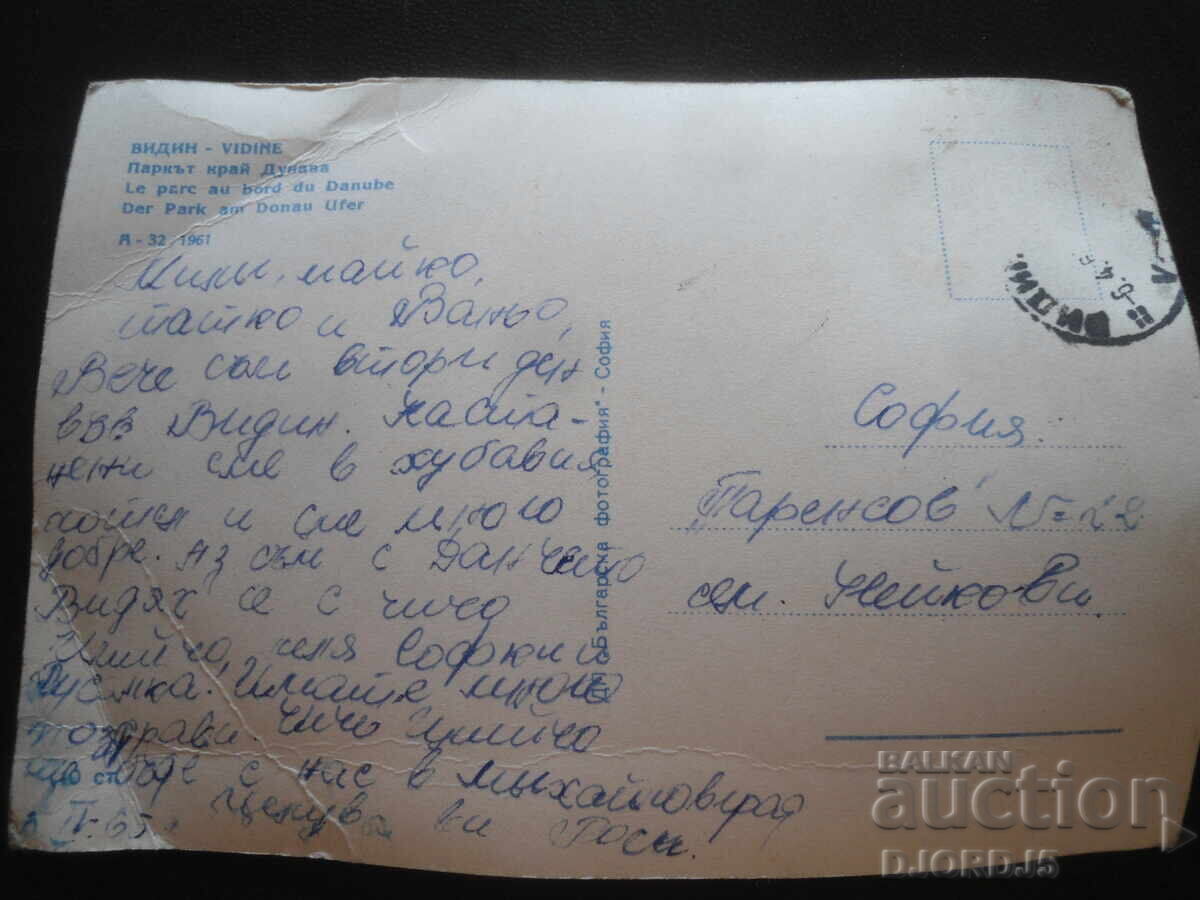 ВИДИН - VIDINE
Паркът край Дунава
Le parc au bord du Danube
Der Park am Donau Ufer
А - 32 1961
Мили майко,
татко и Ваньо,
Вече съм втори ден
във Видин. Наста-
нени сме в хубавия
и сме много
добре. Аз съм с Данчето
Видях се с чичо
Имайте много
поздрави чичо
бъде с нас в Михайловград
Целува ви
ДП "Българска фотография" - София
ВИДИН
София.
"Паренсов" № 22
сем. Нейкови
BALKAN
auction
DJORDJ5